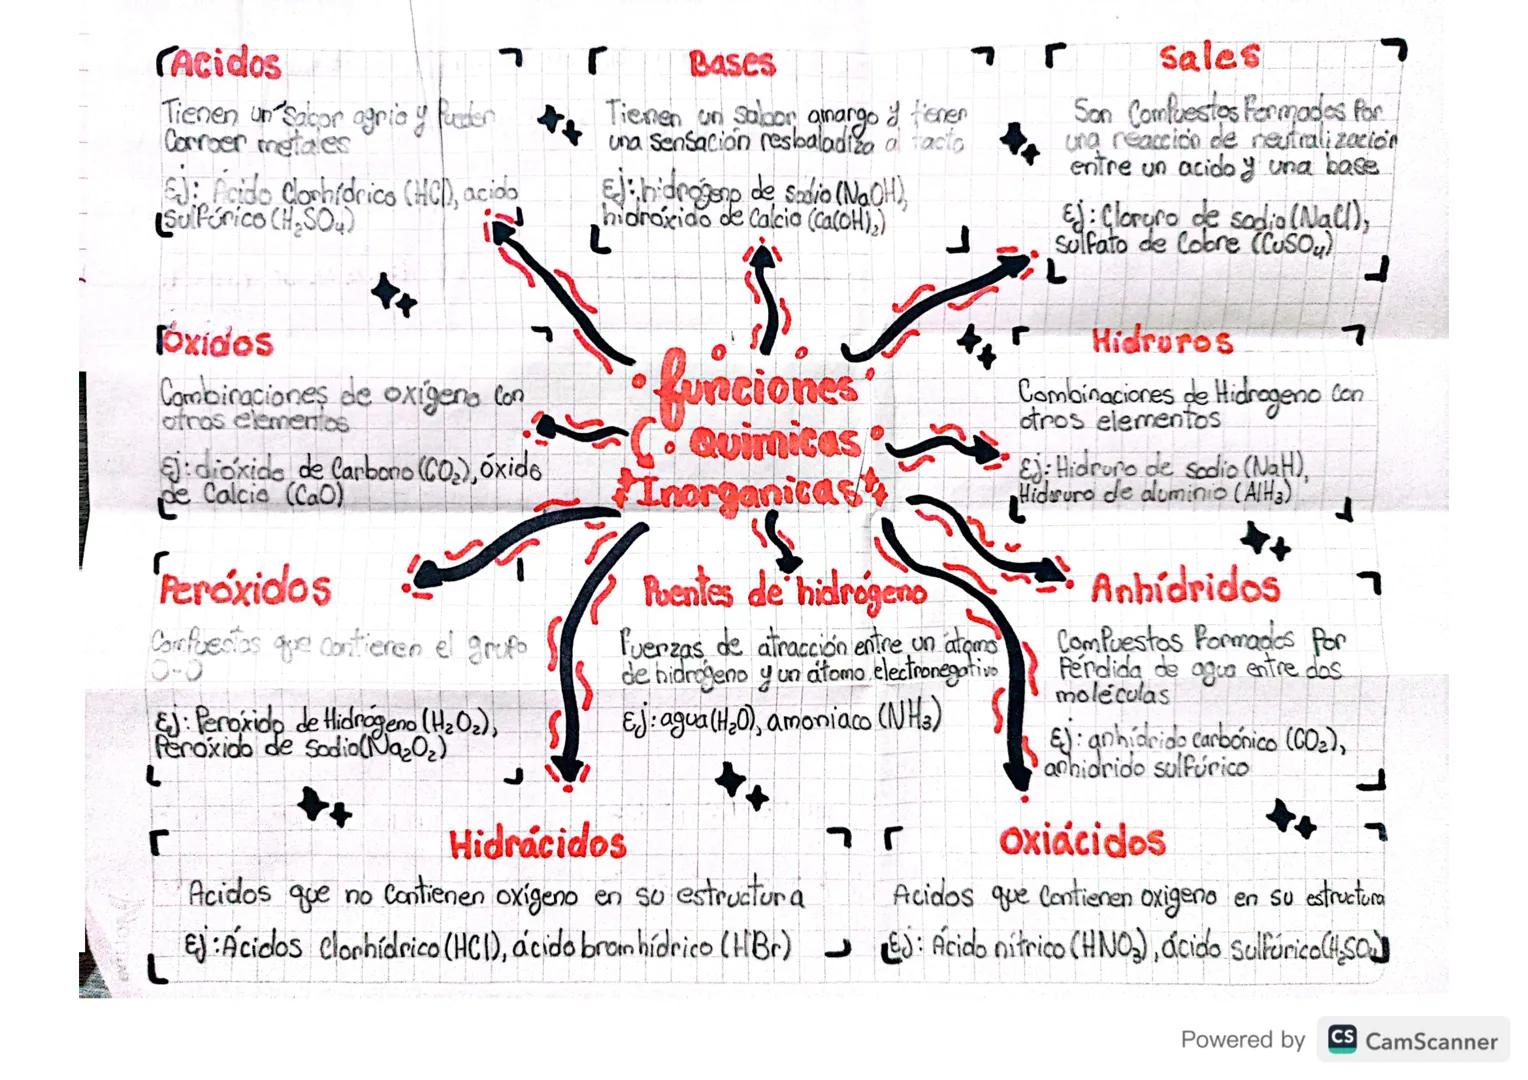 Acidos
Tienen un sabor agrio y pueden
Corroer metales
Ej: Ácido Clorhídrico (HCl), acido
sulfúrico (H₂SO₄)
Bases
Tienen un sabor amargo y tienen
una sensación resbaladiza al tacto
Ej: hidrógeno de sodio (NaOH),
hidróxido de Calcio (Ca(OH)₂)
Sales
Son Compuestos Formados Por
una reacción de neutralización
entre un acido y una base
Ej: Cloruro de sodio (NaCl),
sulfato de Cobre (CuSO₄)
Óxidos
Combinaciones de oxígeno con
otros elementos
Ej: dióxido de Carbono (CO₂), óxido
de Calcio (CaO)
funciones
Químicas
Inorganicas
Hidruros
Combinaciones de Hidrogeno con
otros elementos
Ej: Hidruro de sodio (NaH),
Hidruro de aluminio (AlH₃)
Peróxidos
Compuestos que contienen el grupo
O-O
Ej: Peróxido de Hidrógeno (H₂O₂),
Peróxido de sodio (Na₂O₂)
Puentes de hidrógeno
Fuerzas de atracción entre un átomo
de hidrógeno y un átomo electronegativo
Ej: agua (H₂O), amoniaco (NH₃)
Anhídridos
Compuestos Formados Por
Pérdida de agua entre dos
moléculas
Ej: anhídrido carbónico (CO₂),
anhidrido sulfúrico
Hidrácidos
Acidos que no Contienen oxígeno en su estructura
Ej: Ácidos Clorhídrico (HCl), ácido bromhídrico (HBr)
Oxiácidos
Acidos que Contienen oxigeno en su estructura
Ej: Ácido nítrico (HNO₃), ácido sulfúrico (H₂SO₄)
Powered by CS CamScanner